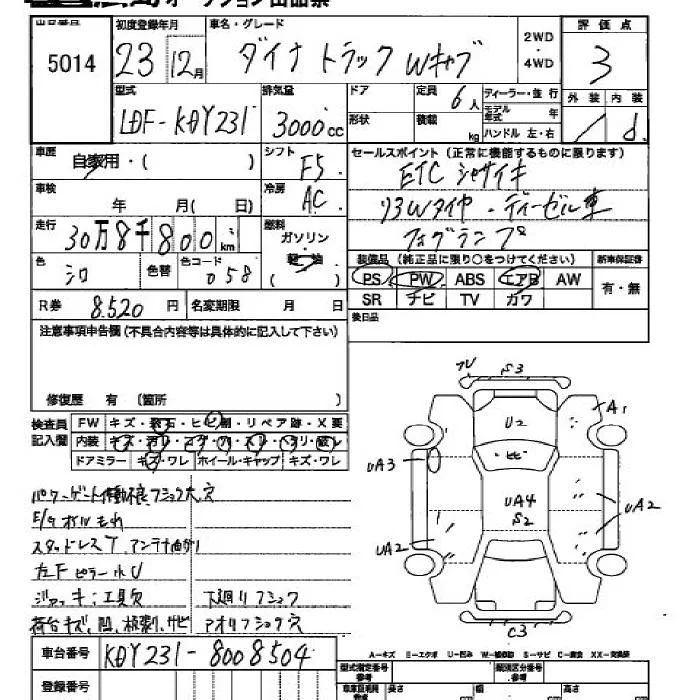 オークション出品票
出品番号 初度登録年月 車名・グレード 2WD・4WD 評価点
5014 23 12月 ダイナ トラック Wキャブ 3
型式 排気量 ドア 定員 6人 ディーラー・並行 外装 内装
LDF-KDY231 3000cc 形状 積載 kg モデル年式 年 ハンドル 左・右 d
車歴 自家用・( ) シフト F5 セールスポイント(正常に機能するものに限ります)
車検 年 月( 日) 冷房 AC ETC シャガイキ
走行 30万8千800km 燃料 ガソリン・軽油 リヌWタイヤ・ディーゼル車
フォグランプ
色 シロ 色替 色コード 058 装備品(純正品に限り○をつけてください) 新車保証書
PS PW ABS エアB AW 有・無
R券 8.520円 名変期限 月 日 SR ナビ TV カワ
注意事項申告欄(不具合内容等は具体的に記入して下さい) 後日品
修復歴 有 (箇所 )
検査員記入欄 FW キズ・飛石・ヒビ割・リペア跡・X要
内装 キズ・汚レ・コゲ・穴・スレ・ヘタリ・破レ
ドアミラー キズ・ワレ ホイール・キャップ キズ・ワレ
パワーゲート作動不良、フショク大、穴
E/Gオイルもれ
スタッドレスT、アンテナ曲がり
左Fピラー小U
ジャッキ;工具欠 下廻りフショク
荷台キズ、凹、板割、サビ アオリフショク穴
フレ S3
U2 A1
ヒビ
UA3
UA4
S2
UA2
UA2
C3
車台番号 KDY231-8008504
A-キズ E-エクボ U-凹み W-補修跡 S-サビ C-腐食 XX-交換跡
登録番号 型式指定番号 類別区分番号
長さ 幅 高さ